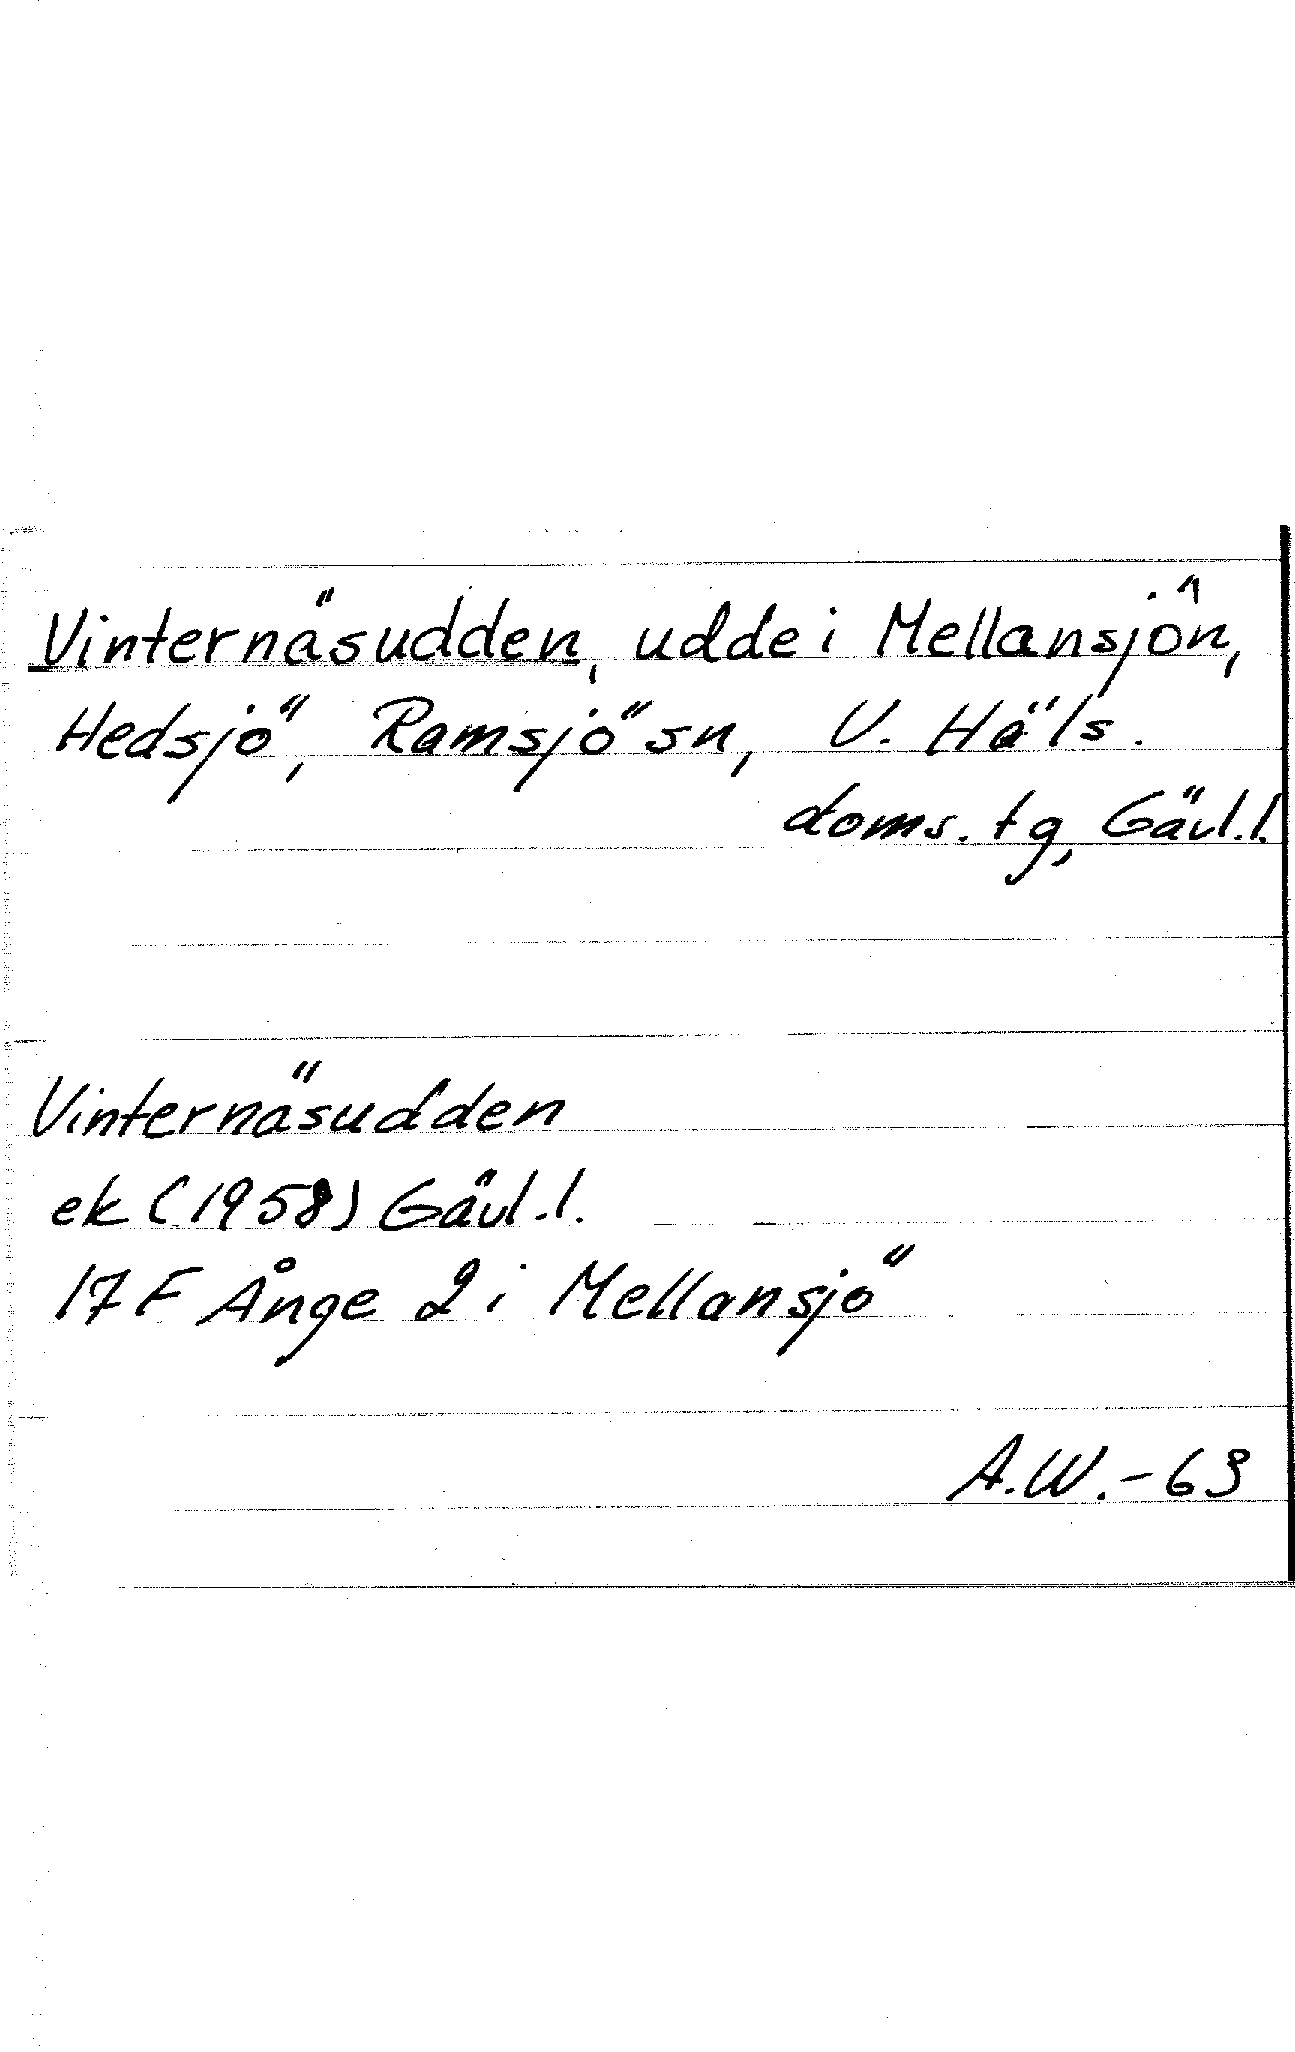 Vinternäsudden, udde i Mellansjön,
Hedsjö, Ramsjö sn, V. Häls.
doms. tg, Gävl.l.
Vinternäsudden
ek (1958) Gävl.l.
17 F Ånge 2 i Mellansjö
A.W. - 63